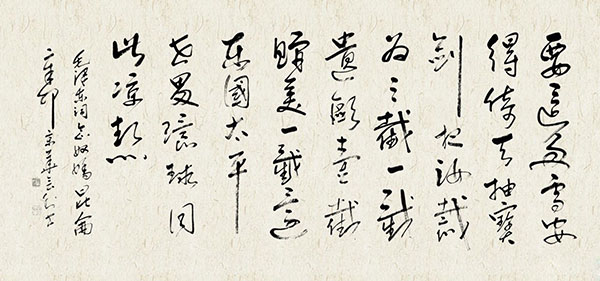 要這多雪安
得倚天抽寶
劍把汝裁
為三截一截
遺歐壹截
贈美一截還
東國太平
世界環球同
此涼熱
毛澤東詞念奴嬌昆侖
辛卯京華